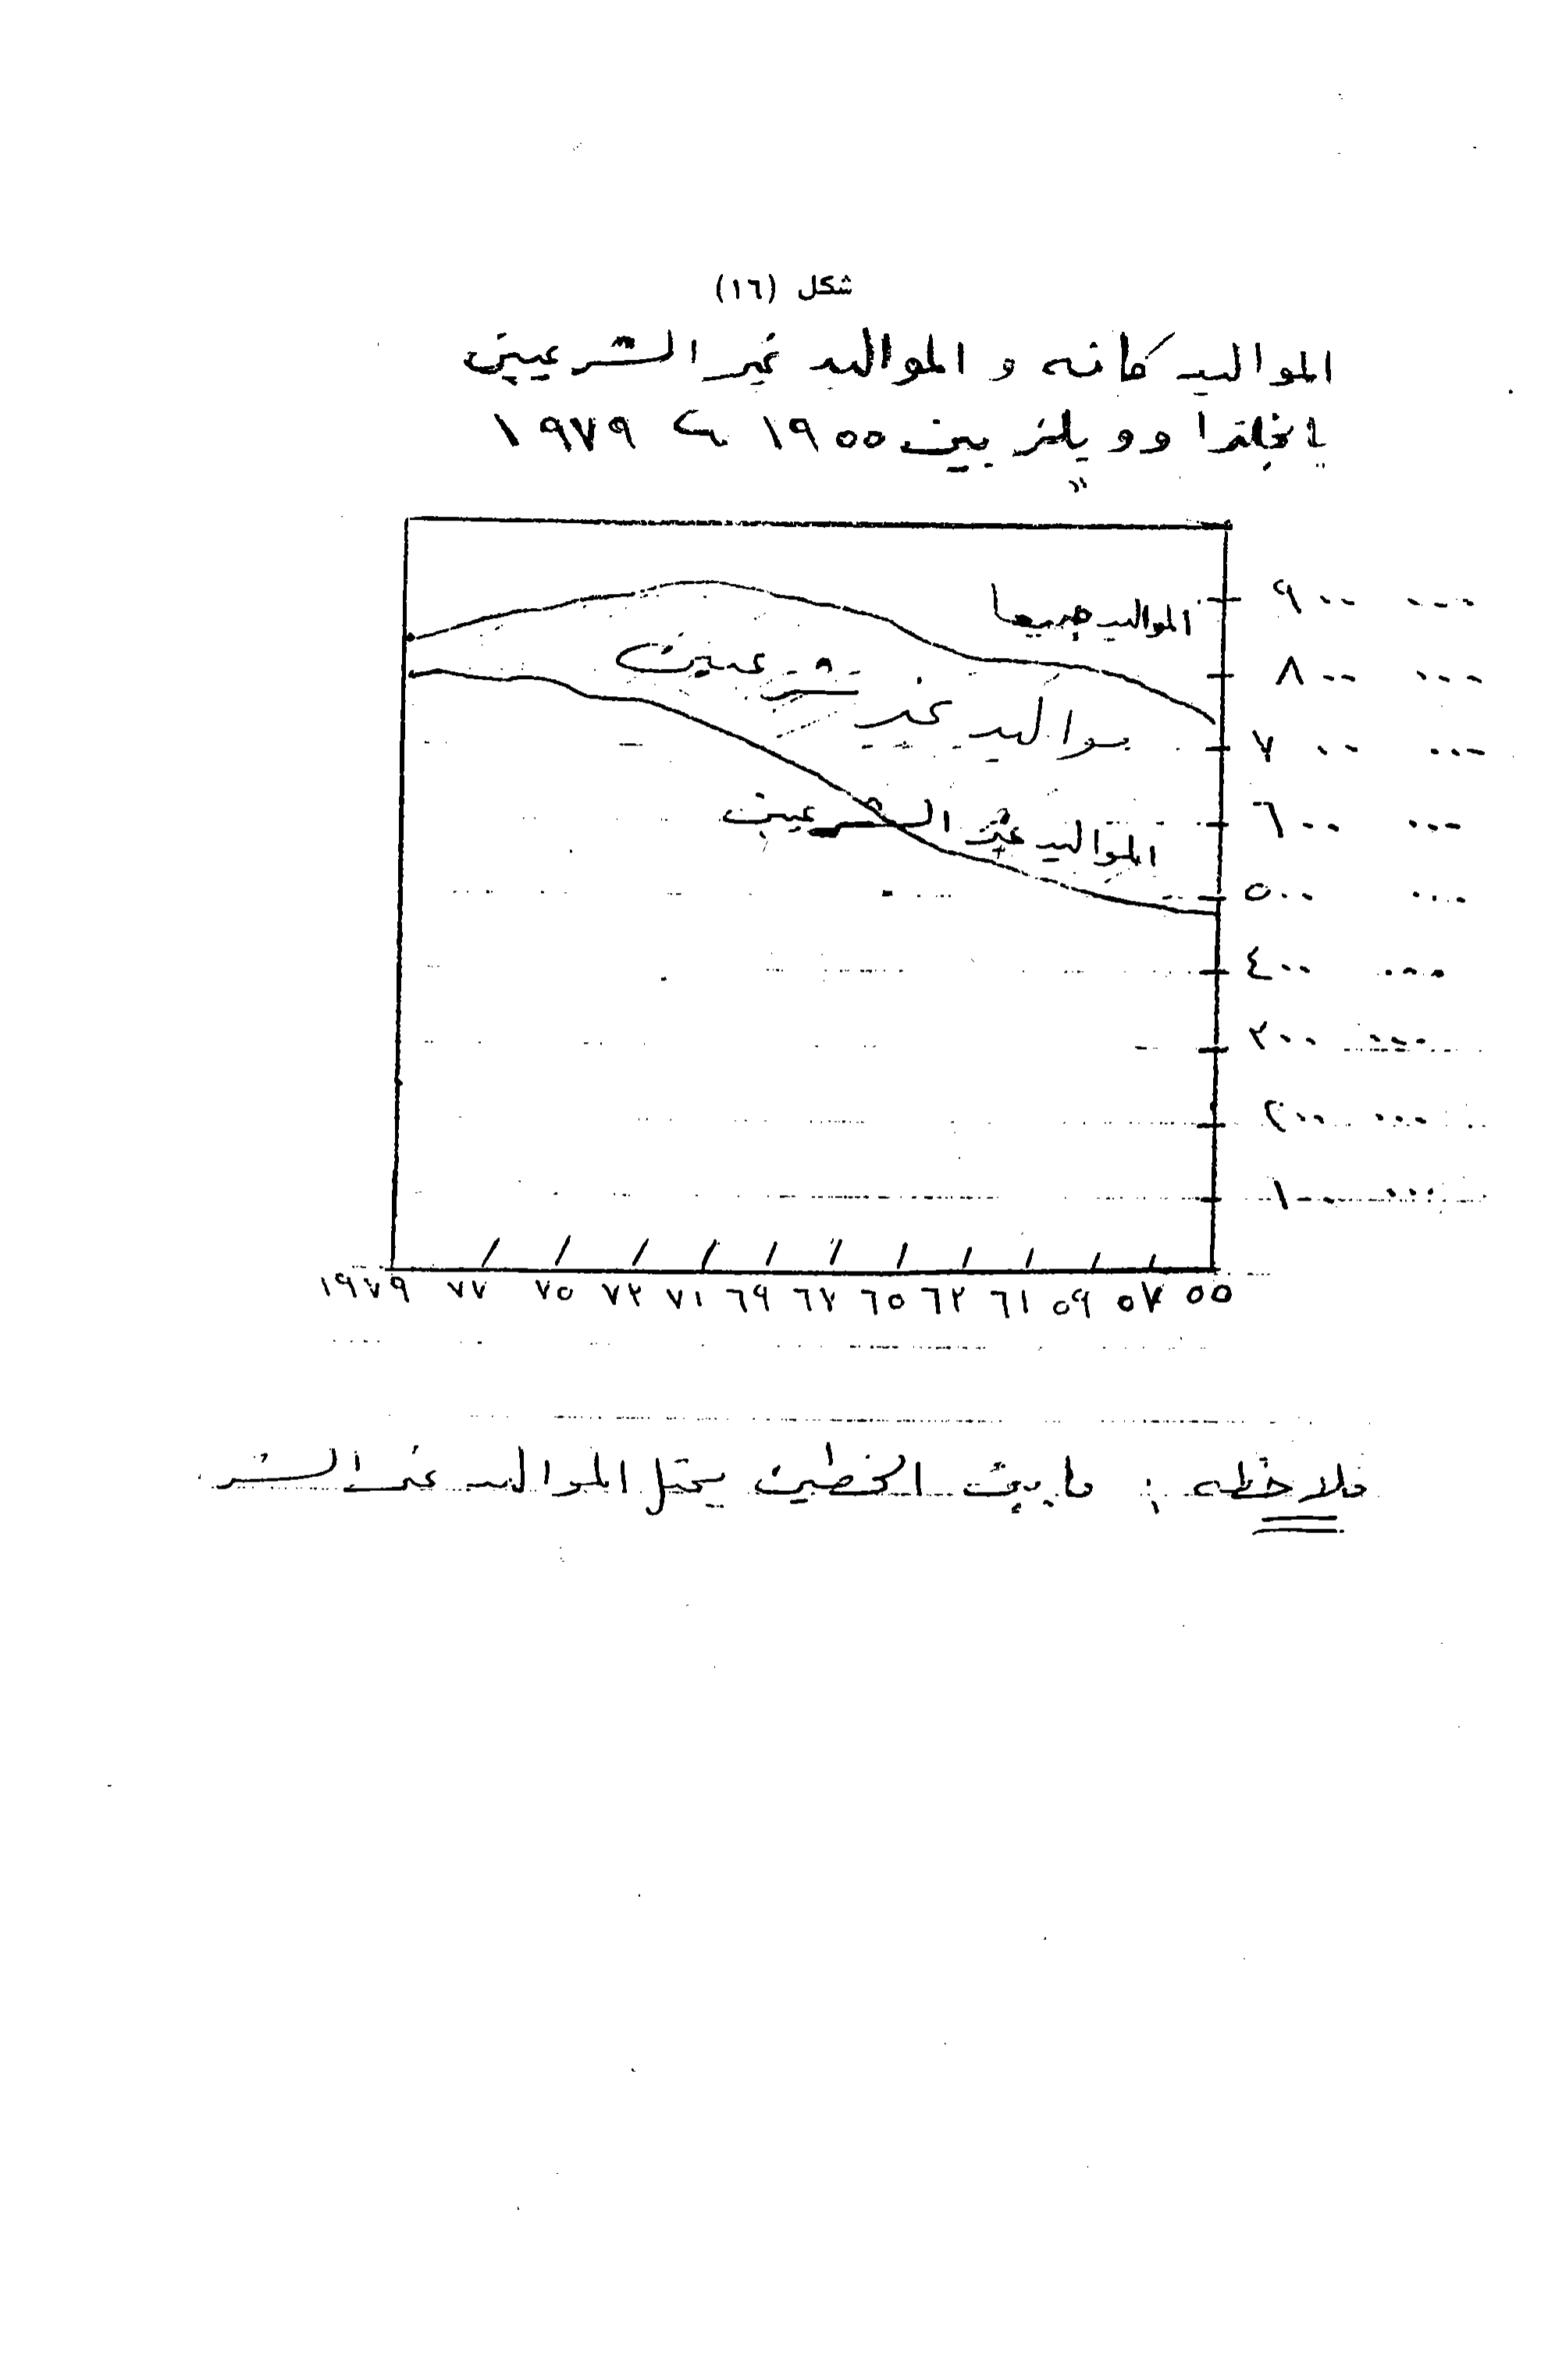 شكل (١٦)
المواليد كافه و المواليد غير الشرعيين
بانجلترا وويلز بين ١٩٥٥ ، ١٩٧٩
المواليد جميعا
مواليد غير شرعيين
المواليد غير الشرعيين
٩٠٠ ٠٠٠
٨٠٠ ٠٠٠
٧٠٠ ٠٠٠
٦٠٠ ٠٠٠
٥٠٠ ٠٠٠
٤٠٠ ٠٠٠
٣٠٠ ٠٠٠
٢٠٠ ٠٠٠
١٠٠ ٠٠٠
٥٥ ٥٧ ٥٩ ٦١ ٦٣ ٦٥ ٦٧ ٦٩ ٧١ ٧٣ ٧٥ ٧٧ ١٩٧٩
ملاحظه : ما بين الخطين يمثل المواليد غير الشر